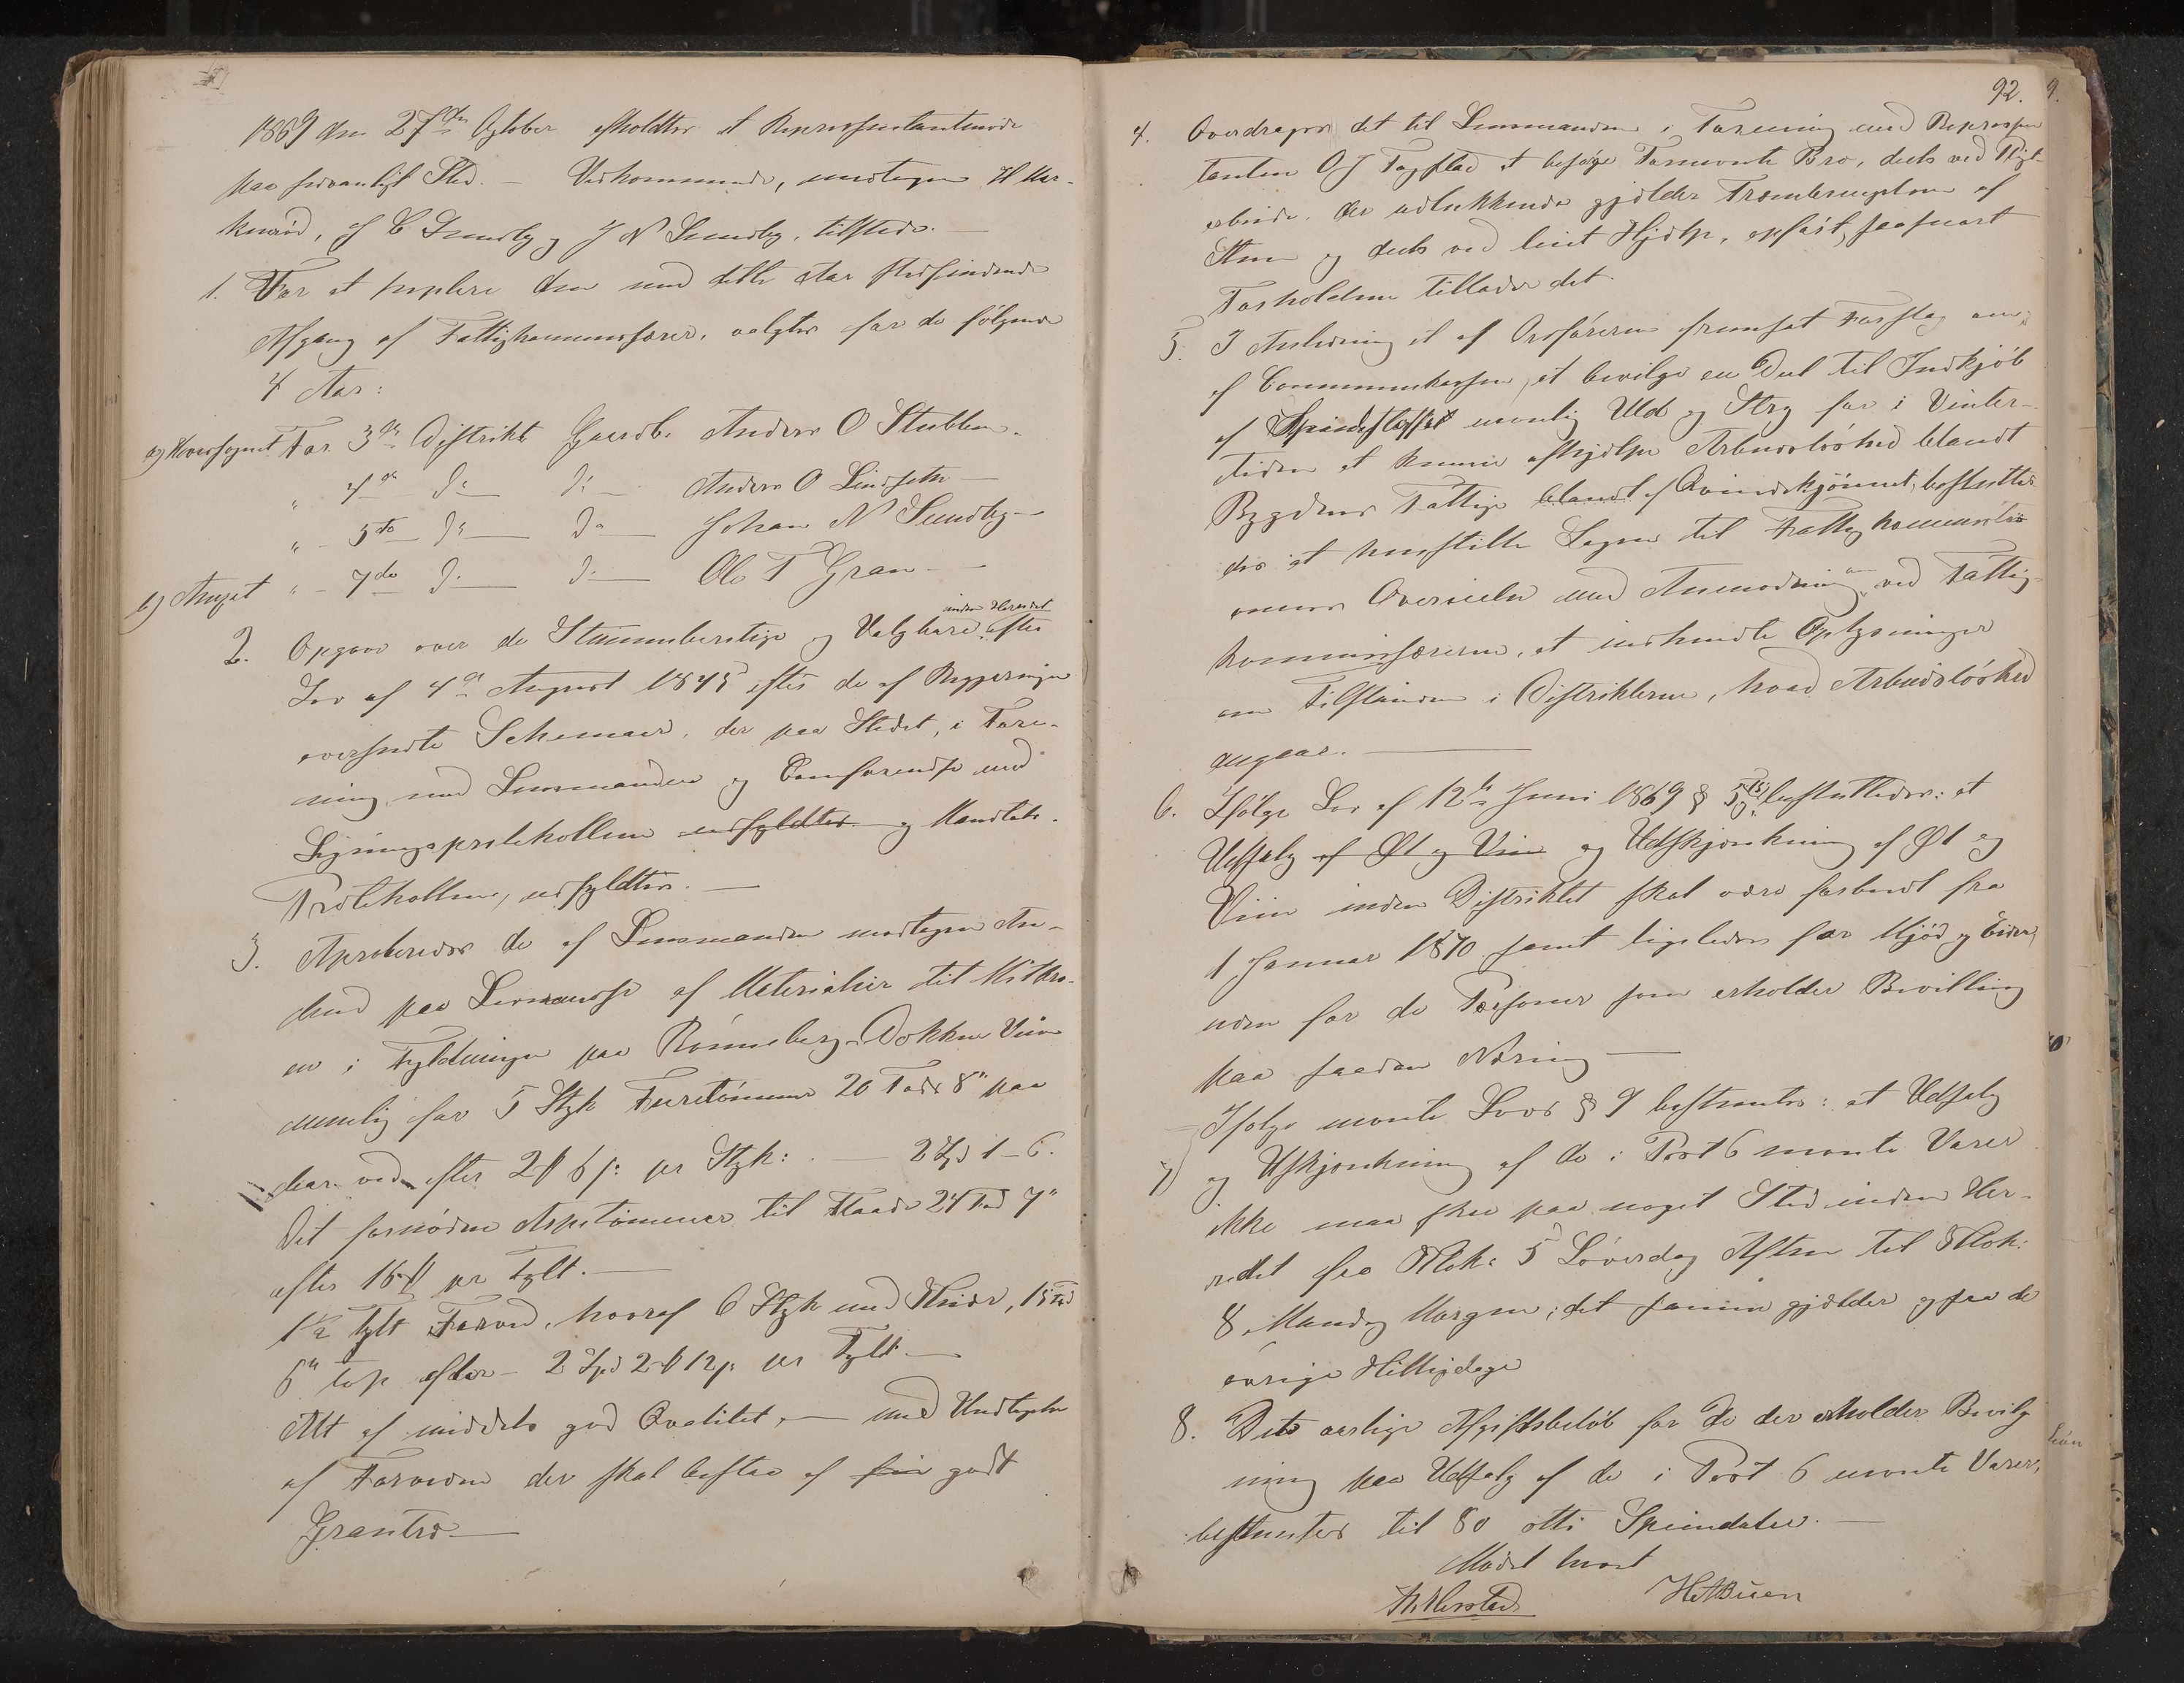 1869 den 27de Oktober afholdtes et Repræsentantmøde
paa sedvanligt Sted. – Vedkommende, undtagen H Mar-
kerød, C Sundby og J N Sundby, tilstede. –
1. For at supplere den med dette Aar stedfindende
Afgang af Fattigkommissærer, valgtes for de følgende
4 Aar:
a) Hovedsognet For 3die Distrikt Gaardb. Anders O Stubben.
" 4de Do Do Anders O Lindseth –
" – 5te Do Do Johan N Sundby –
b) Annexet " – 7de Do Do Ole T Gran –
2. Opgave over de Stemmeberettige og Valgbare inden Heredet efter
Lov af 4de August 1845 efter de af Regjeringen
oversendte Schemaer, der paa Stedet, i Fore-
ning med Lensmanden og Conferendse med
Ligningsprotokollen udfyldtes og Mandtals-
Protokollen, udfyldtes. –
3. Aproberedes de af Lensmanden modtagne An-
bud paa Leverandse af Materialier til
i Fyldningen paa Rønneberg-Dokken Veien
nemlig for 5 Styk Furetømmer 20 Fods 8" paa
efter 2 # 6 s. pr Styk: . – 2 Spd 1 – 6.
Det fornødne Aspetømmer til Flaade 24 Fod 7"
efter 16 # pr Tylt. –
1½ Tylt Farved, hvoraf 6 Styk med Knier, 15 Fod
6" top efter – 2 Spd 2 # 12 s. pr Tylt –
Alt af middels god Qvalitet, – med Undtagelse
af Farveden der skal bestaa af fin godt
Grantræ –
92.
4. Overdrages det til Lensmanden i Forening med Repræsen
tanten O J Fagstad at besørge Bro, deels ved Pligt-
arbeide, der udelukkende gjelder Frembringelsen af
Steen og deels ved leiet Hjelp, opført, saasnart
Forholdene tillader det.
5. I Anledning et af Ordføreren fremsat Forslag om,
af Communekassen, at bevilge en Deel til Indkjøb
af Spindestoffet nemlig Uld og Stry for i Vinter-
tiden at kunne afhjelpe Arbeidsløshed blandt
Bygdens Fattige blandt af Qvindekjønnet, besluttes
det at henstille Sagen til Fattigkommissio
nens Overveielse med Anmodning om ved Fattig-
kommissærerne, at indhendte Oplysninger
om Tilstanden i Distrikterne, hvad Arbeidsløshed
angaar. –
6. Ifølge Lov af 12te Juni 1869 § 5 besluttedes: at
Udsalg af Øl og Viin og Udskjenkning af Øl og
Viin inden Distriktet skal være forbudt fra
1 Januar 1870 samt ligeledes for Mjød og Cider,
uden for de Personer som erholder Bevilling
paa saadan Næring –
7) Ifølge nevnte Lovs § 9 bestemtes: at Udsalg
og Udskjenkning af de i Post 6 nevnte Varer
ikke maa skee paa noget Sted inden Her-
redet fra Klok: 5 Løverdag Aften til Klok:
8 Mandag Morgen; det samme gjælder ogsaa de
øvrige Helligdage
8. Det aarlige Afgiftsbeløb for de der erholder Bevilg
ning paa Udsalg af de i Post 6 nevnte Varer,
bestemtes til 80 otti Speciedaler. –
Mødet hævet
H A Buen